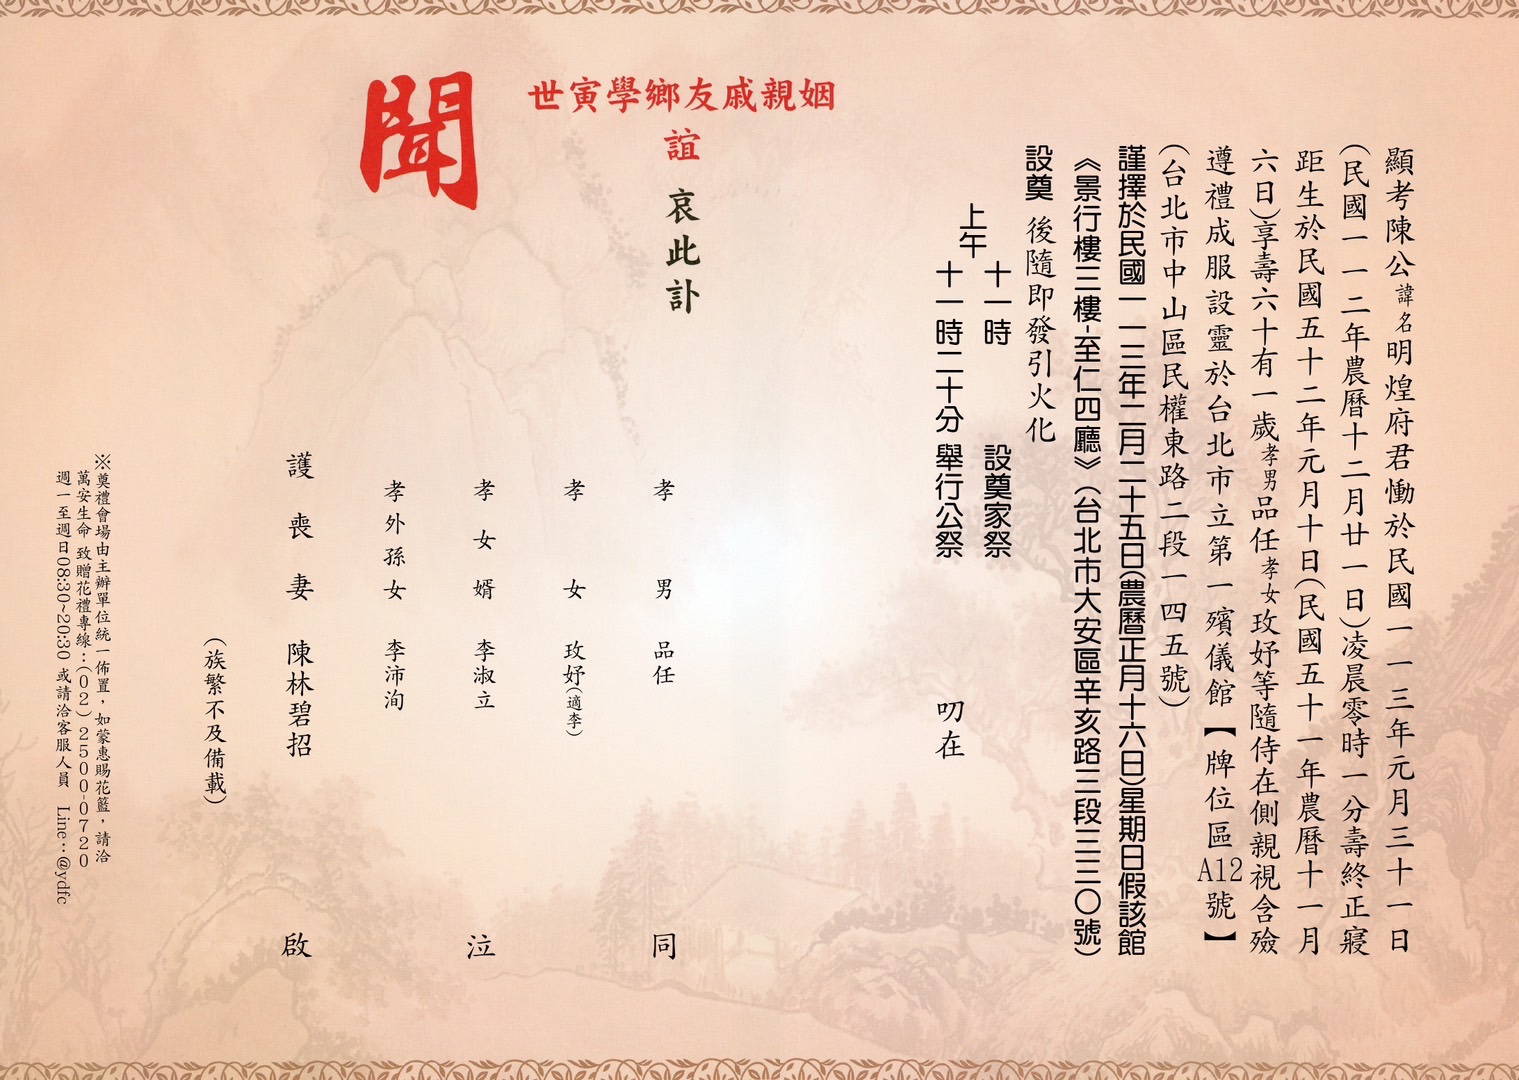 顯考陳公諱名明煌府君慟於民國一一三年元月三十一日
(民國一一二年農曆十二月廿一日)凌晨零時一分壽終正寢
距生於民國五十二年元月十日(民國五十一年農曆十一月
六日)享壽六十有一歲孝男品任孝女玫妤等隨侍在側親視含殮
遵禮成服設靈於台北市立第一殯儀館【牌位區A12號】
(台北市中山區民權東路二段一四五號)
謹擇於民國一一三年二月二十五日(農曆正月十六日)星期日假該館
《景行樓三樓-至仁四廳》(台北市大安區辛亥路三段三三〇號)
設奠 後隨即發引火化
上午
十一時 設奠家祭
十一時二十分 舉行公祭
叨在
姻親戚友鄉學寅世
誼
哀此訃
聞
孝男 品任
孝女 玫妤(適李)
孝女婿 李淑立
孝外孫女 李沛洵
護喪妻 陳林碧招
同
泣
啟
(族繁不及備載)
※奠禮會場由主辦單位統一佈置，如蒙惠賜花籃，請洽
萬安生命 致贈花禮專線：(02)2500-0720
週一至週日08:30~20:30 或請洽客服人員 Line：@ydfc